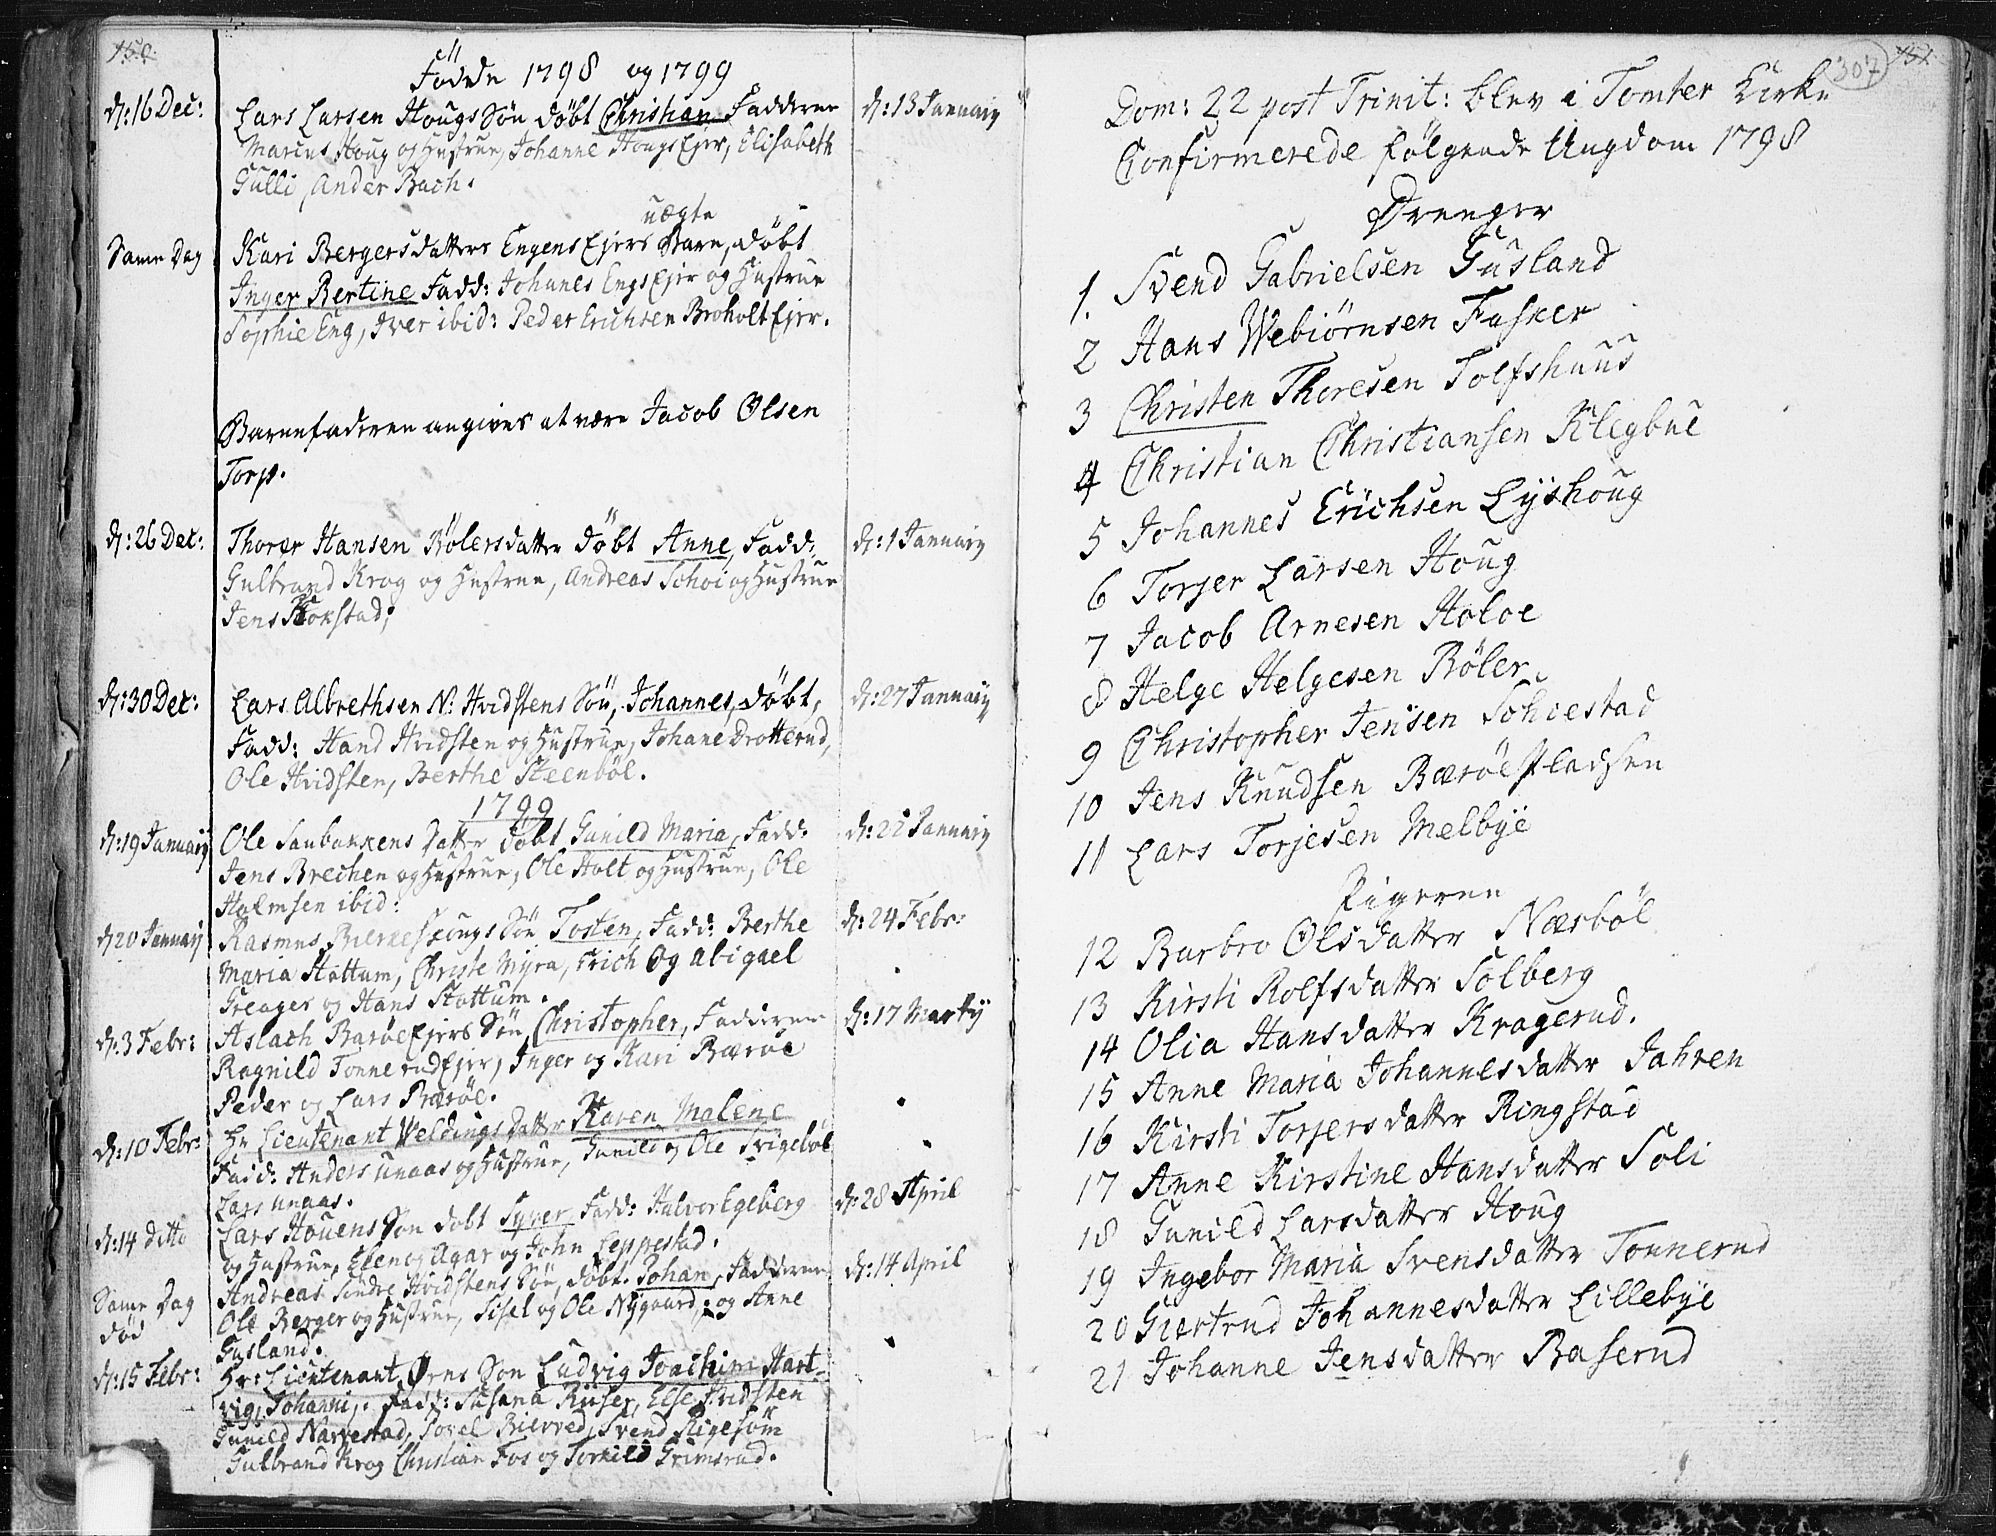 150.
Födde 1798 og 1799
d: 16 Dec:
Lars Larsen Hougs Sön döbt Christian Fadderne
d: 13 January
Marcus Houg og Hustrue, Johanne Hougs Ejer, Elisabeth
Gulli, Ander Bach.
uægte
Same Dag
Kari Bergersdatters Engens Ejers Barn, döbt
Inger Bertine Fadd: Johanes Engs Ejer og Hustrue
Sophie Eng, Iver ibid: Peder Erichsen Broholt Ejer.
Barnefaderen angives at være Jacob Olsen
Torp.
d: 26 Dec:
Thorer Hansen Bölers datter döbt Anne, Fadd:
d: 1 January
Gulbrand Krog og Hustrue, Andreas Schoi og Hustrue
Jens Hokstad;
d: 30 Dec:
Lars Albrethsen N: Hvidstens Sön, Johannes, döbt,
d: 27 January
Fadd: Hand Hvidsten og Hustrue, Johane Drotterud,
Ole Hvidsten, Berthe Steenböl.
1799
d: 19 January
Ole Saubakkens Datter döbt Gunild Maria, Fadd:
d: 21 January
Jens Brechen og Hustrue, Ole Holt og Hustrue, Ole
Holmsen ibid:
d 20 January
Rasmus Sön Tosten, Fadd: Berthe
d: 24 Febr:
Maria Hattum, Christe Myra, Erich og Abigael
Greager og Hans Stattum.
d: 3 Febr:
Aslach Baröe Ejers Sön Christopher, Fadderne
d: 17 Marty
Ragnild Tonnerud Ejer, Inger og Kari Bæröe
Peder og Lars Bæröe.
d: 10 Febr:
Hr Lieutenant Veldings Datter Karen Malene
Fadd: Anders Unaas og Hustrue, Gunild og Ole Svigeböl
Lars Unaas.
d: 14 ditto
Lars Houens Sön döbt Syver Fadd: Halvor Egeberg
d: 28 April
og Hustrue, Elen og Agar og John Leppestad.
Same Dag
Andreas Söndre Hvidstens Sön, döbt. Johan, Fadderne
d: 14 April
död
Ole Berger og Hustrue, Sisel og Ole Nygaard, og Anne
Gusland.
d: 15 Febr:
Hr: Lieutenant Örns Sön Ludvig Joachim Hart-
vig Johanni,. Fadd: Susana Riiser, Else Hvidsten
Gunild Narvestad, Sovel Bierved, Svend Rigesöm
Gulbrand Krog Christian Fos og Torkild Grimsrud.
151.
307
Dom: 22 post Trinit: blev i Tomter Kirke
Confirmerede følgende Ungdom 1798
Drenger
1. Svend Gabrielsen Gusland
2 Hans Webiörnsen Fasker
3 Christen Thoresen Tolfshuus
4 Christian Christiansen Klegbue
5 Johannes Erichsen Lyshoug
6 Torjer Larsen Houg
7 Jacob Arnesen Holoe
8 Helge Helgesen Böler
9 Christopher Jensen Schiestad
10 Jens Knudsen Bæröe Pladsen
11 Lars Torjesen Melbye
Pigerne
12 Barbro Olsdatter Næsböl
13 Kirsti Rolfsdatter Solberg
14 Olia Hansdatter Kragerud.
15 Anne Maria Johannesdatter Jahren
16 Kirsti Torjersdatter Ringstad
17 Anne Kirstine Hansdatter Soli
18 Gunild Larsdatter Houg
19 Ingebor Maria Svensdatter Tonnerud
20 Giertrud Johannesdatter Lillebye
21 Johanne Jensdatter Baserud